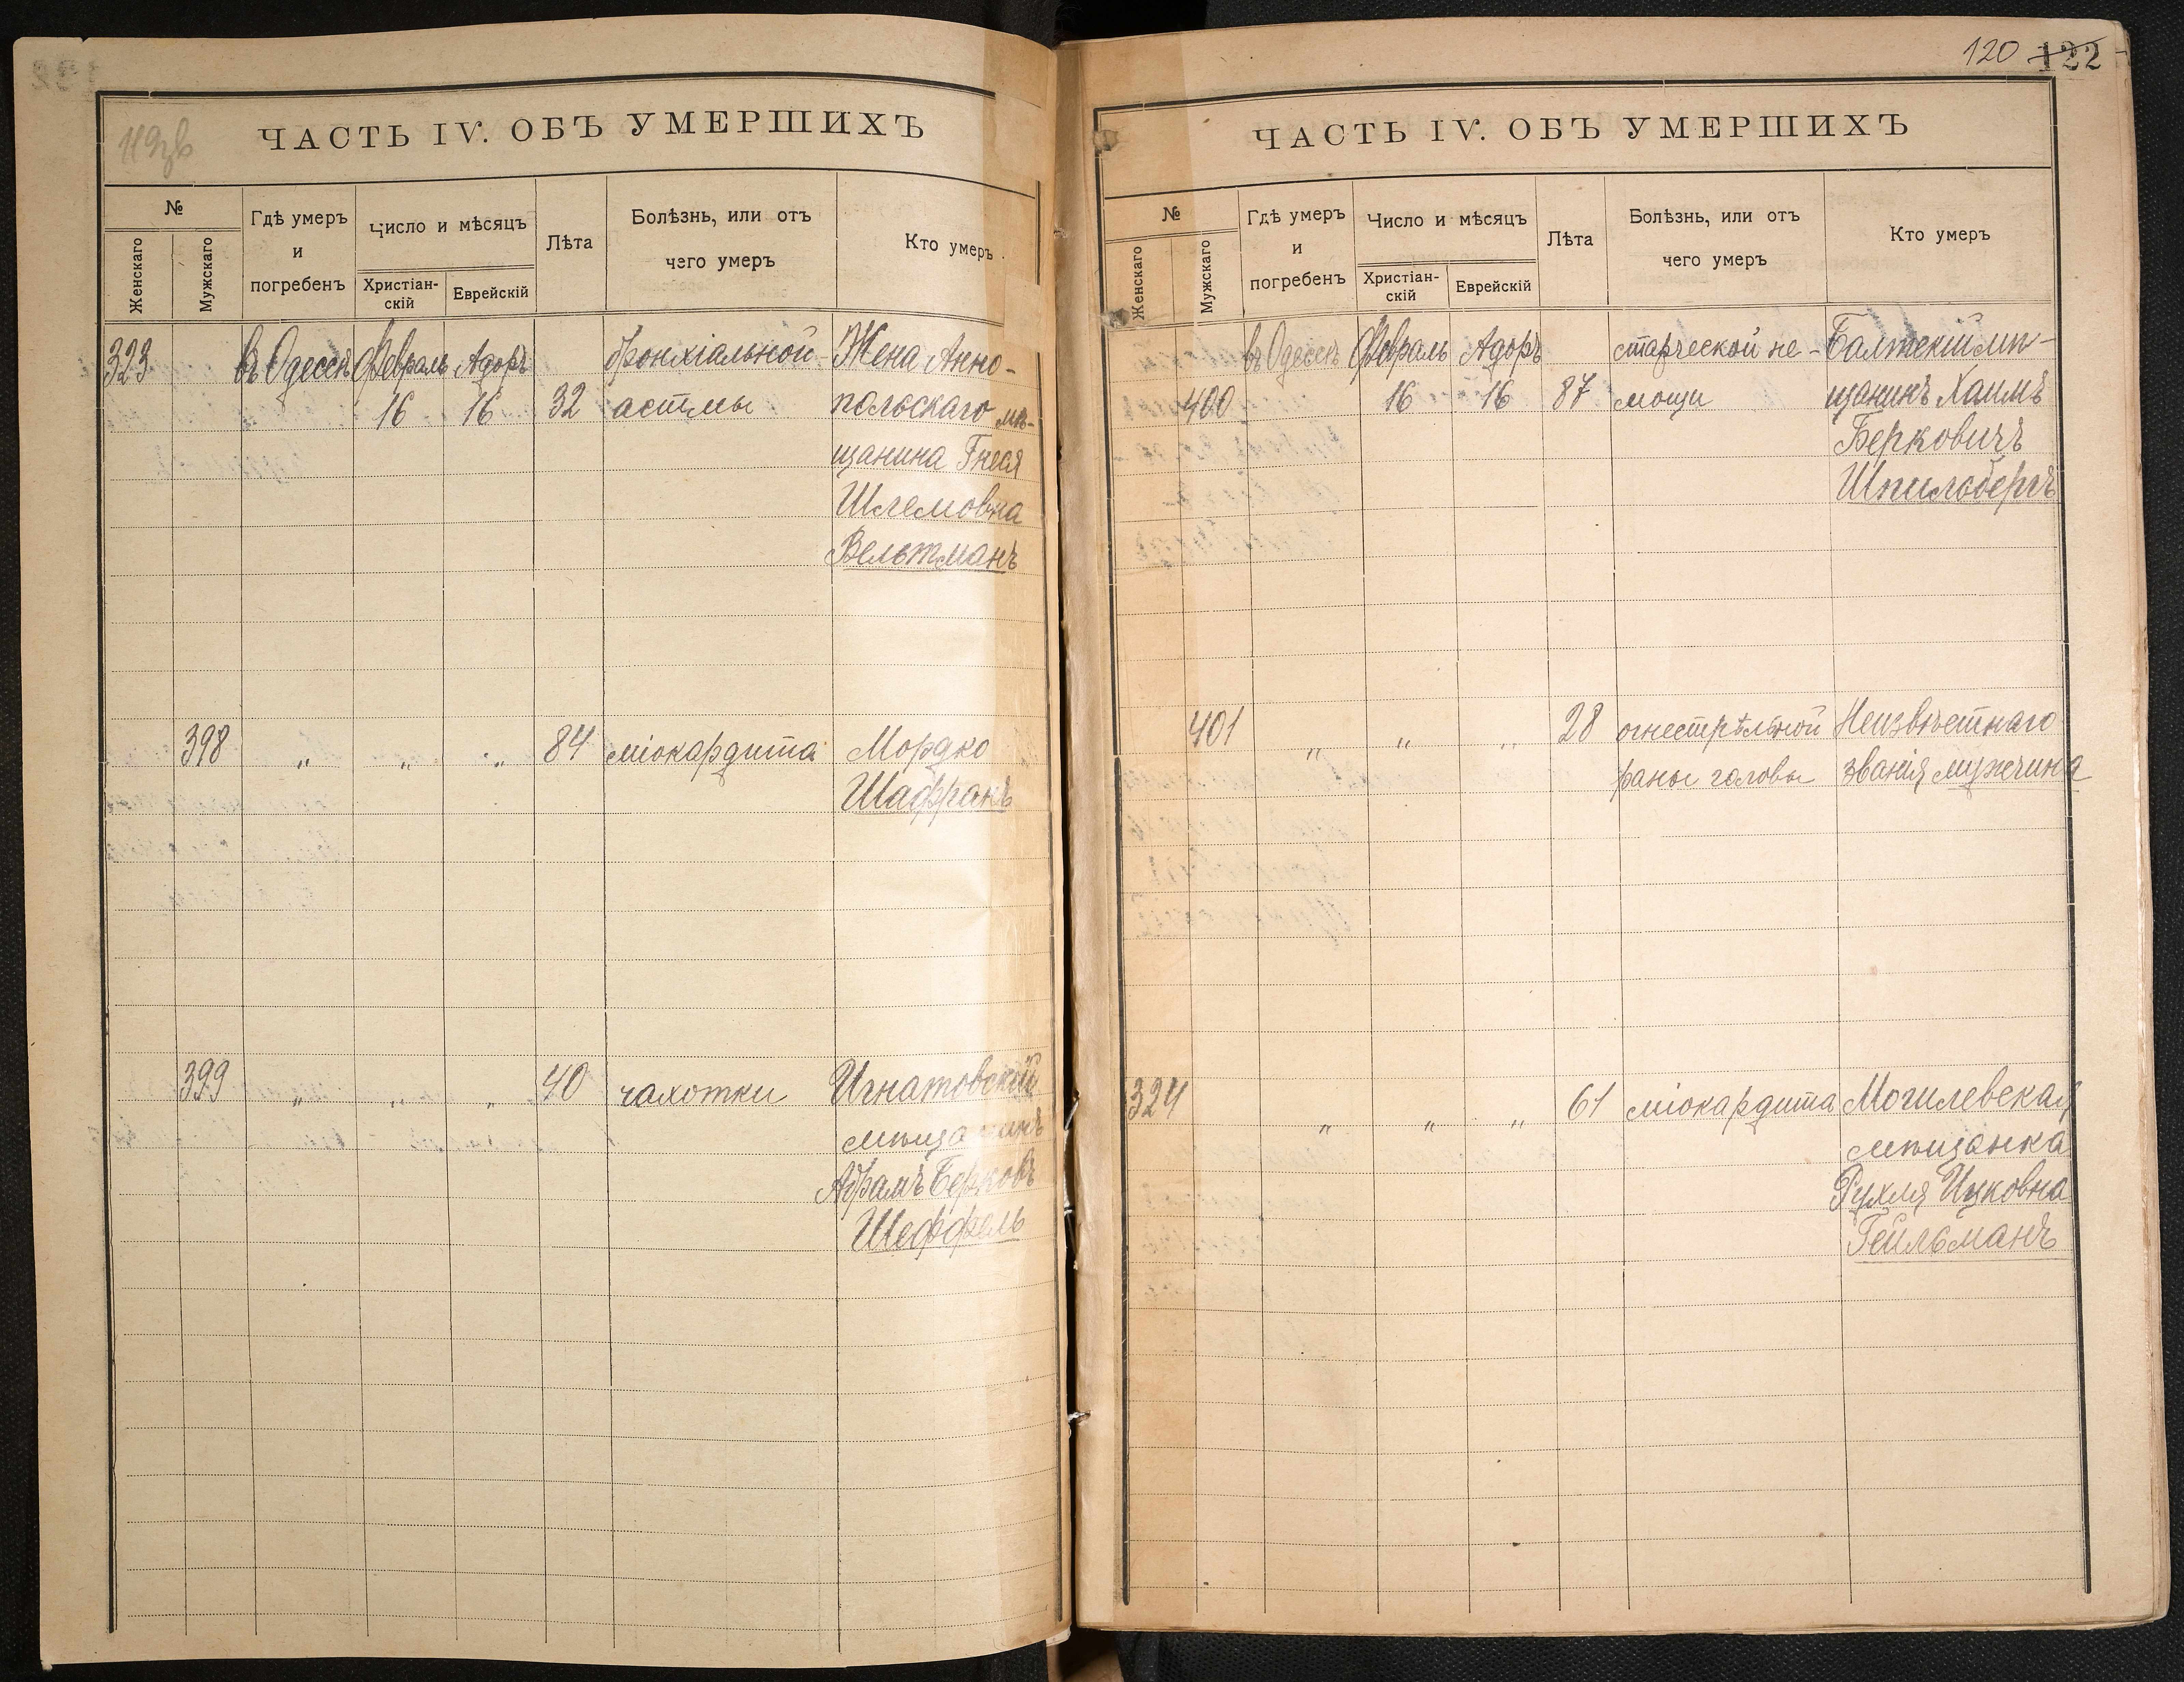 119зв
ЧАСТЬ IV. ОБЪ УМЕРШИХЪ
№
Женскаго
Мужскаго
Гдѣ умеръ
и
погребенъ
Число и мѣсяцъ
Христіан-
скій
Еврейскій
Лѣта
Болѣзнь, или отъ
чего умеръ
Кто умеръ
323 въ Одессѣ Февраль Адоръ бронхіальной Жена Анно-
16 16 32 астмы польскаго мѣ-
щанина Гнеся
Шлемовна
Вельтманъ
398 " " " 84 міокардита Мордко
Шафранъ
399 " " " 40 чахотки Игнатовскій
мѣщанинъ
Абрамъ Берковъ
Шеффель
120 122
ЧАСТЬ IV. ОБЪ УМЕРШИХЪ
№
Женскаго
Мужскаго
Гдѣ умеръ
и
погребенъ
Число и мѣсяцъ
Христіан-
скій
Еврейскій
Лѣта
Болѣзнь, или отъ
чего умеръ
Кто умеръ
въ Одессѣ Февраль Адоръ старческой не- Балтскій мѣ-
400 16 16 87 мощи щанинъ Хаимъ
Берковичъ
Шпильбергъ
401 " " " 28 огнестрѣльной Неизвѣстнаго
раны головы званія мужчина
324 " " " 61 міокардита Могилевская
мѣщанка
Рухля Ицковна
Гейльманъ